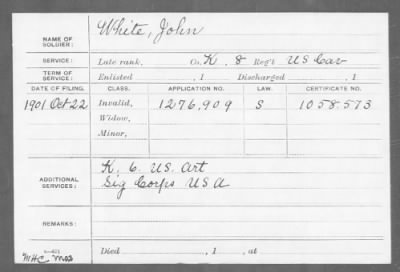 NAME OF SOLDIER: White, John
SERVICE: Late rank, Co. K. 8 Reg't US Cav
TERM OF SERVICE: Enlisted , 1 Discharged , 1
DATE OF FILING. CLASS. APPLICATION NO. LAW. CERTIFICATE NO.
1901 Oct 22 Invalid, 1276,909 S 1058.573
Widow,
Minor,
ADDITIONAL SERVICES: K. 6. US. Art
Sig Corps USA
REMARKS:
Died , 1 , at